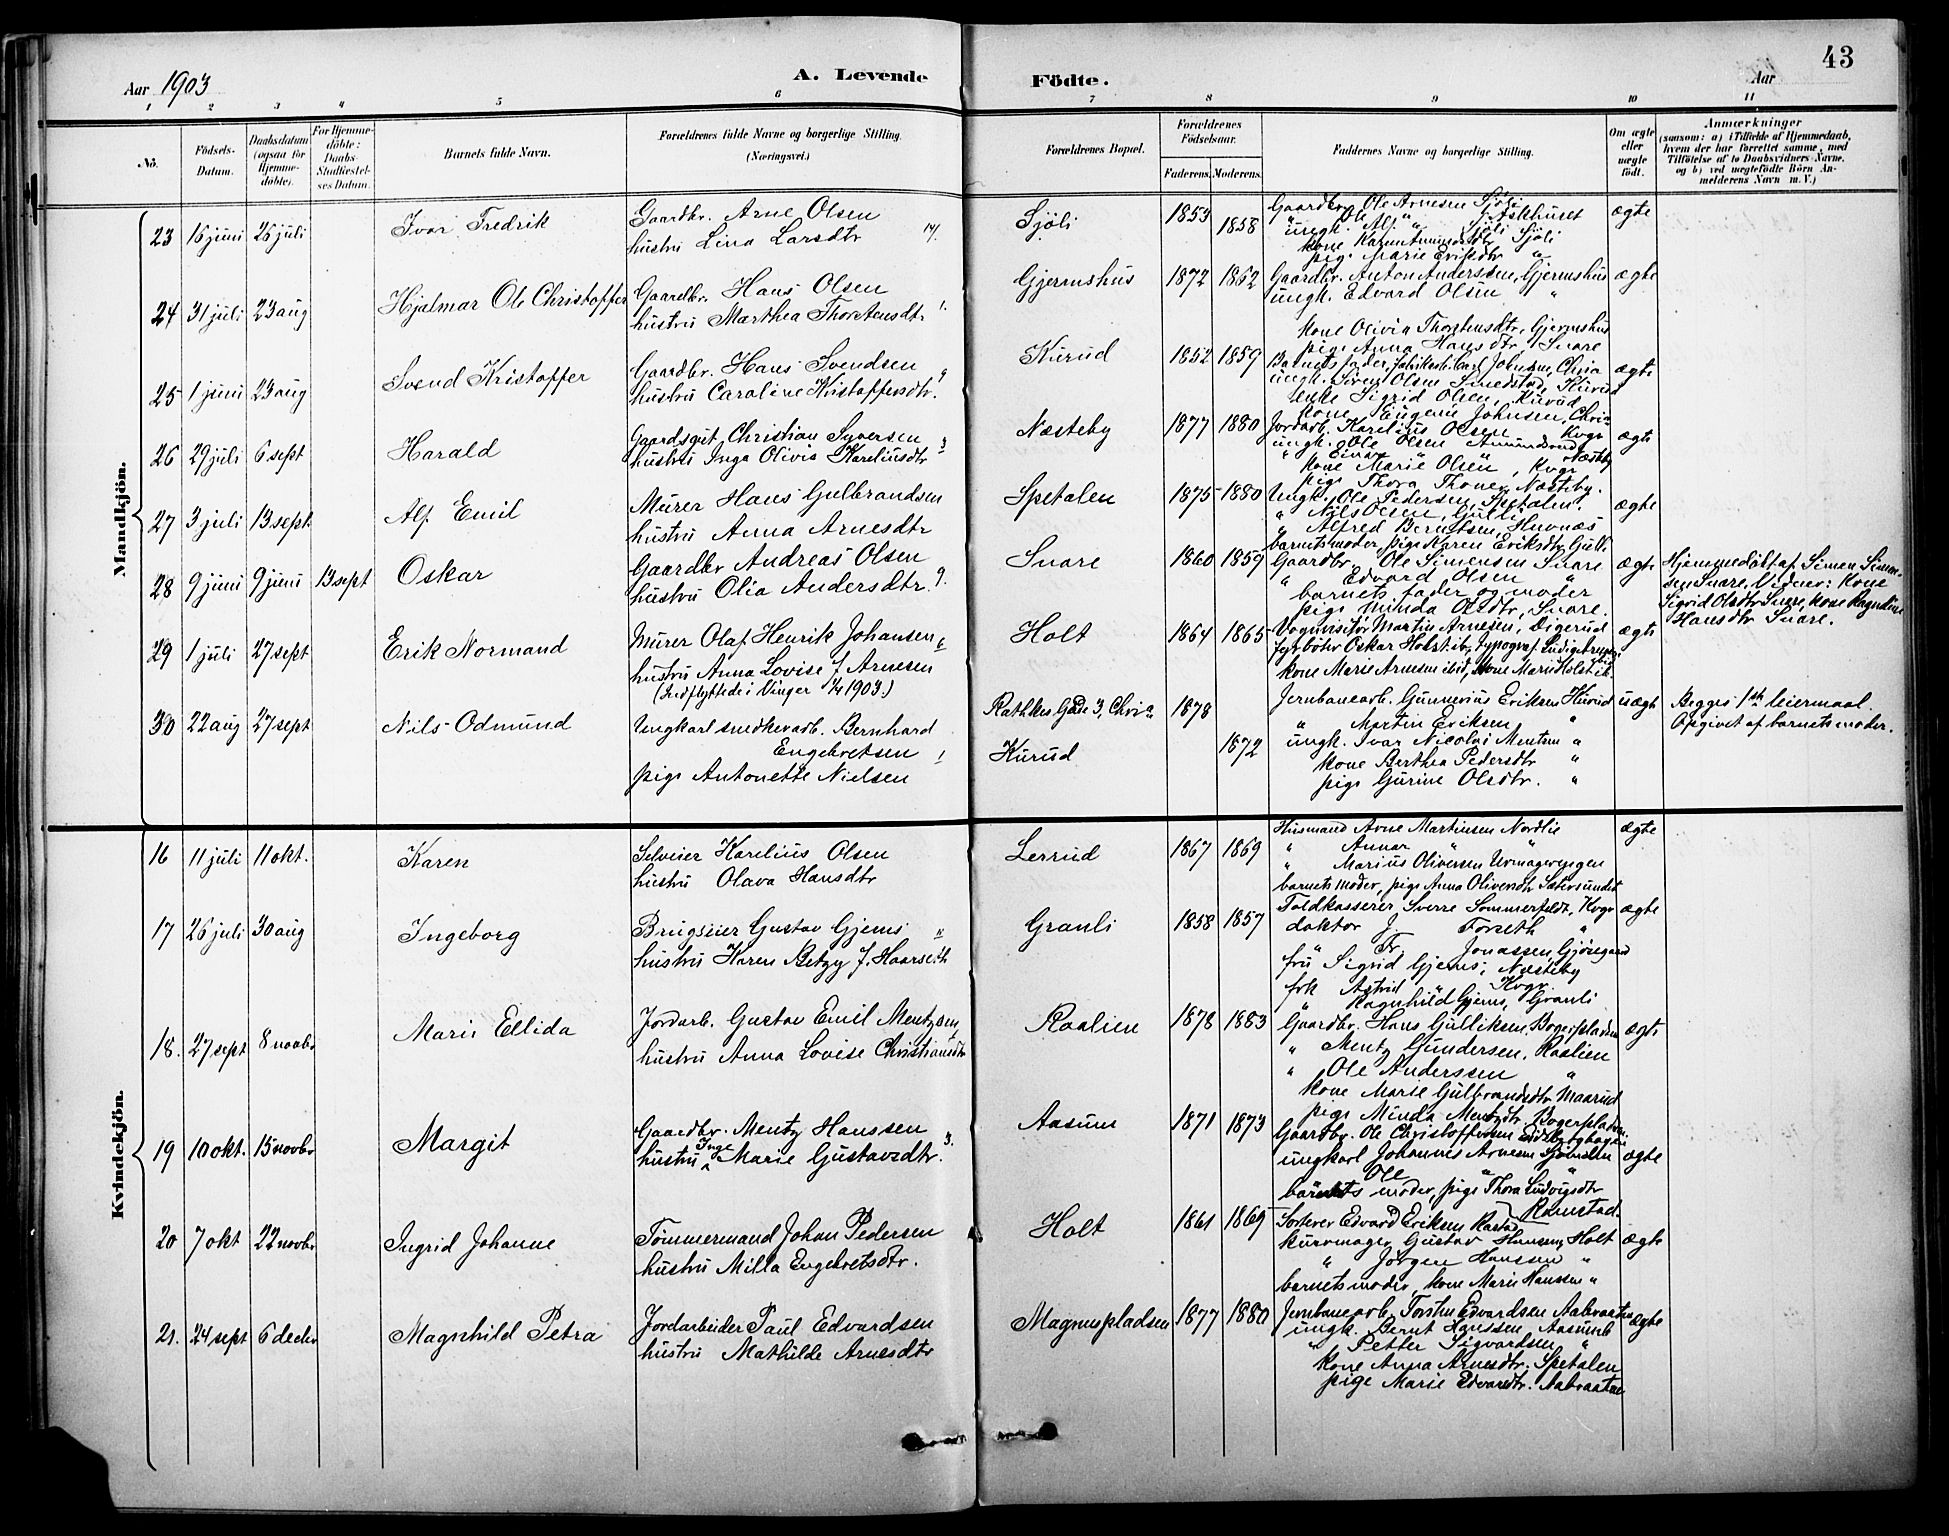 43
Aar 1903
A. Levende Födte.
Aar
1 2 3 4 5 6 7 8 9 10 11
No.
Födsels-Datum.
Daabsdatum (ogsaa for Hjemmedöbte).
For Hjemmedöbte: Daabs-Stadfæstelses Datum.
Barnets fulde Navn.
Forældrenes fulde Navne og borgerlige Stilling. (Næringsvei.)
Forældrenes Bopæl.
Forældrenes Födselsaar.
Faderens. Moderens.
Faddernes Navne og borgerlige Stilling.
Om ægte eller uægte födt.
Anmærkninger (saasom: a) i Tilfælde af Hjemmedaab, hvem der har forrettet samme, med Tilföielse af to Daabsvidners Navne, og b) ved uægtefödte Börn Anmelderens Navn m. V.)
Mandkjön.
23 16 juni 26 juli
Ivar Fredrik
Gaardbr. Arne Olsen
hustru Lina Larsdtr
Sjöli
1853 1858
Gaardbr. Ole Arnesen Sjöli
" Ole " Askhuset
ungk. Alf " Sjöli
kone Karen Amundsdtr Sjöli
pige Marie Eriksdtr "
ægte
24 31 juli 23 aug
Hjalmar Ole Christoffer
Gaardbr. Hans Olsen
hustru Marthea Thorstensdtr
Gjermshus
1872 1862
Gaardbr. Anton Anderssen, Gjermshus
ungk. Edvard Olsen "
kone Olivia Thorstensdtr, Gjermshus
pige Anna Hansdtr, Snare
ægte
25 1 juni 23 aug
Svend Kristoffer
Gaardbr. Hans Svendsen
hustru Caroline Kristoffersdtr.
Kurud
1852 1859
Barnets fader, fabrikarb. Carl Johnsen, Chria
ungk. Sören Olsen Smedstad, Kurud
enke Sigrid Olsen, Kurud
kone Eugenie Johnsen, Chria
ægte
26 29 juli 6 sept
Harald
Gaardsgut Christian Syversen
hustru Inga Olivia Kareliusdtr
Næsteby
1877 1880
Jordarb. Karelius Olsen Kvgr
ungk. Ole Olsen Amundsrud
" Einar " " Næsteby
kone Marie Olsen, Kvgr
pige Thora Thoner, Næsteby.
ægte
27 3 juli 13 sept
Alf Emil
Murer Hans Gulbrandsen
hustru Anna Arnesdtr
Spetalen
1875 1880
Ungk. Ole Pedersen, Spetalen.
" Nils Olsen, Gulli
" Alfred Berntsen, Huvnæs
barnets moder, pige Karen Eriksdtr, Gulli
ægte
28 9 juni 9 juni 13 sept
Oskar
Gaardbr Andreas Olsen
hustru Olia Andersdtr
Snare
1860 1859
Gaardbr. Ole Simensen Snare
" Edvard Olsen "
barnets fader og moder
pige Minda Olsdtr, Snare.
ægte
Hjemmedöbt af Simen Simensen Snare, Vidner: Kone
Sigrid Olsdtr Snare, kone Ragndine
Hansdtr Snare.
29 1 juli 27 sept
Erik Normand
Murer Olaf Henrik Johansen
hustru Anna Lovise f. Arnesen
(Indflyttede i Vinger 1/4 1903.)
Holt
1864 1865
Vognvisitör Martin Arnesen, Digerud
fyrböter Oskar Holst ib, typograf Ludvig Arnesen
kone Marie Arnesen ibid, kone Marie Holst ib.
ægte
30 22 aug 27 sept
Nils Odmund
Ungkarl snedkerarb. Bernhard
Engebretsen
pige Antonette Nielsen
Rathkes Gade 3, Chria
Kurud
1878
1872
Jernbanearb. Gunnerius Eriksen Kurud
" Martin Eriksen "
ungk. Ivar Nicolai Mentzen "
kone Berthea Pedersdtr "
pige Gurine Olsdtr. "
uægte
Begges 1ste leiermaal.
Opgivet af barnets moder.
Kvindekjön.
16 11 juli 11 okt.
Karen
Selveier Karelius Olsen
hustru Olava Hansdtr
Lerrud
1867 1869
Husmand Arne Martinsen Nordlie
" Annar " "
" Marius Oliversen Urmagerengen
barnets moder, pige Anna Oliversdtr Sætersundet
ægte
17 26 juli 30 aug
Ingeborg
Brugseier Gustav Gjems
hustru Karen Betzy f. Haarseth
Granli
1858 1857
Toldkasserer Sverre Sommerfeldt, Kvgr
doktor J. Forseth "
" Fr. Jonassen, Gjösegaard
fru Sigrid Gjems, Næsteby
frk Astrid " Kvgr
" Ragnhild Gjems, Granli
ægte
18. 27 sept 8 novbr
Marie Ellida
Jordarb. Gustav Emil Mentzsen
hustru Anna Lovise Christiansdtr
Raalien
1878 1883
Gaardbr. Hans Gulliksen, Bogerpladsen
" Mentz Gundersen, Raalien
" Ole Anderssen "
kone Marie Gulbrandsdtr Maarud
pige Minda Mentzdtr Bogerpladsen
ægte
19 10 okt. 15 novbr
Margit
Gaardbr. Mentz Hanssen
hustru Inge Marie Gustavsdtr.
Aasum
1871 1873
Gaardbr. Ole Christoffersen Eidsbergbagen
ungkarl Johannes Arnesen Sjömelen
" Ole " "
barnets moder, pige Thora Ludvigsdtr
Ramstad.
ægte
20 7 okt 22 novbr
Ingrid Johanne
Tömmermand Johan Pedersen
hustru Milla Engebretsdtr.
Holt
1861 1869
Sorterer Edvard Eriksen Rastad
kurvmager Gustav Hansen, Holt
" Jörgen Hanssen "
barnets moder, kone Marie Hanssen "
ægte
21. 24 sept 6 decbr
Magnhild Petra
Jordarbeider Paul Edvardsen
hustru Mathilde Arnesdtr
Magnuspladsen
1877 1880
Jernbanearb. Torsten Edvardsen Aabraaten
ungk. Bernt Hanssen, Aasum
" Petter Sigvardsen "
kone Anna Arnesdtr. Spetalen
pige Marie Edvardsdtr. Aabraaten
ægte